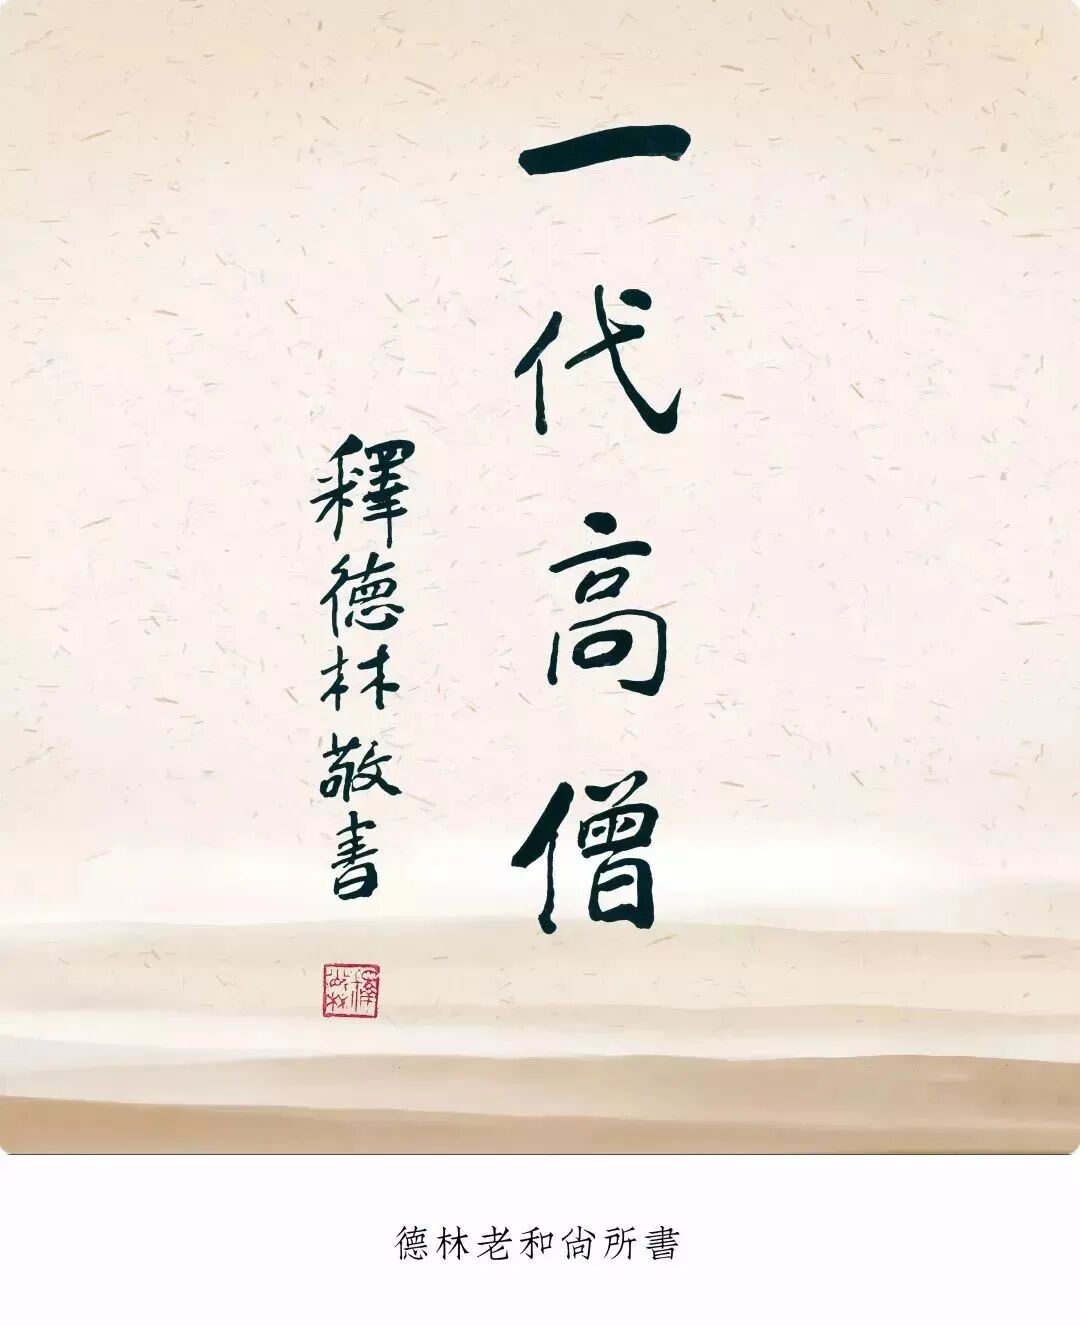 一代高僧
釋德林敬書
德林老和尚所書